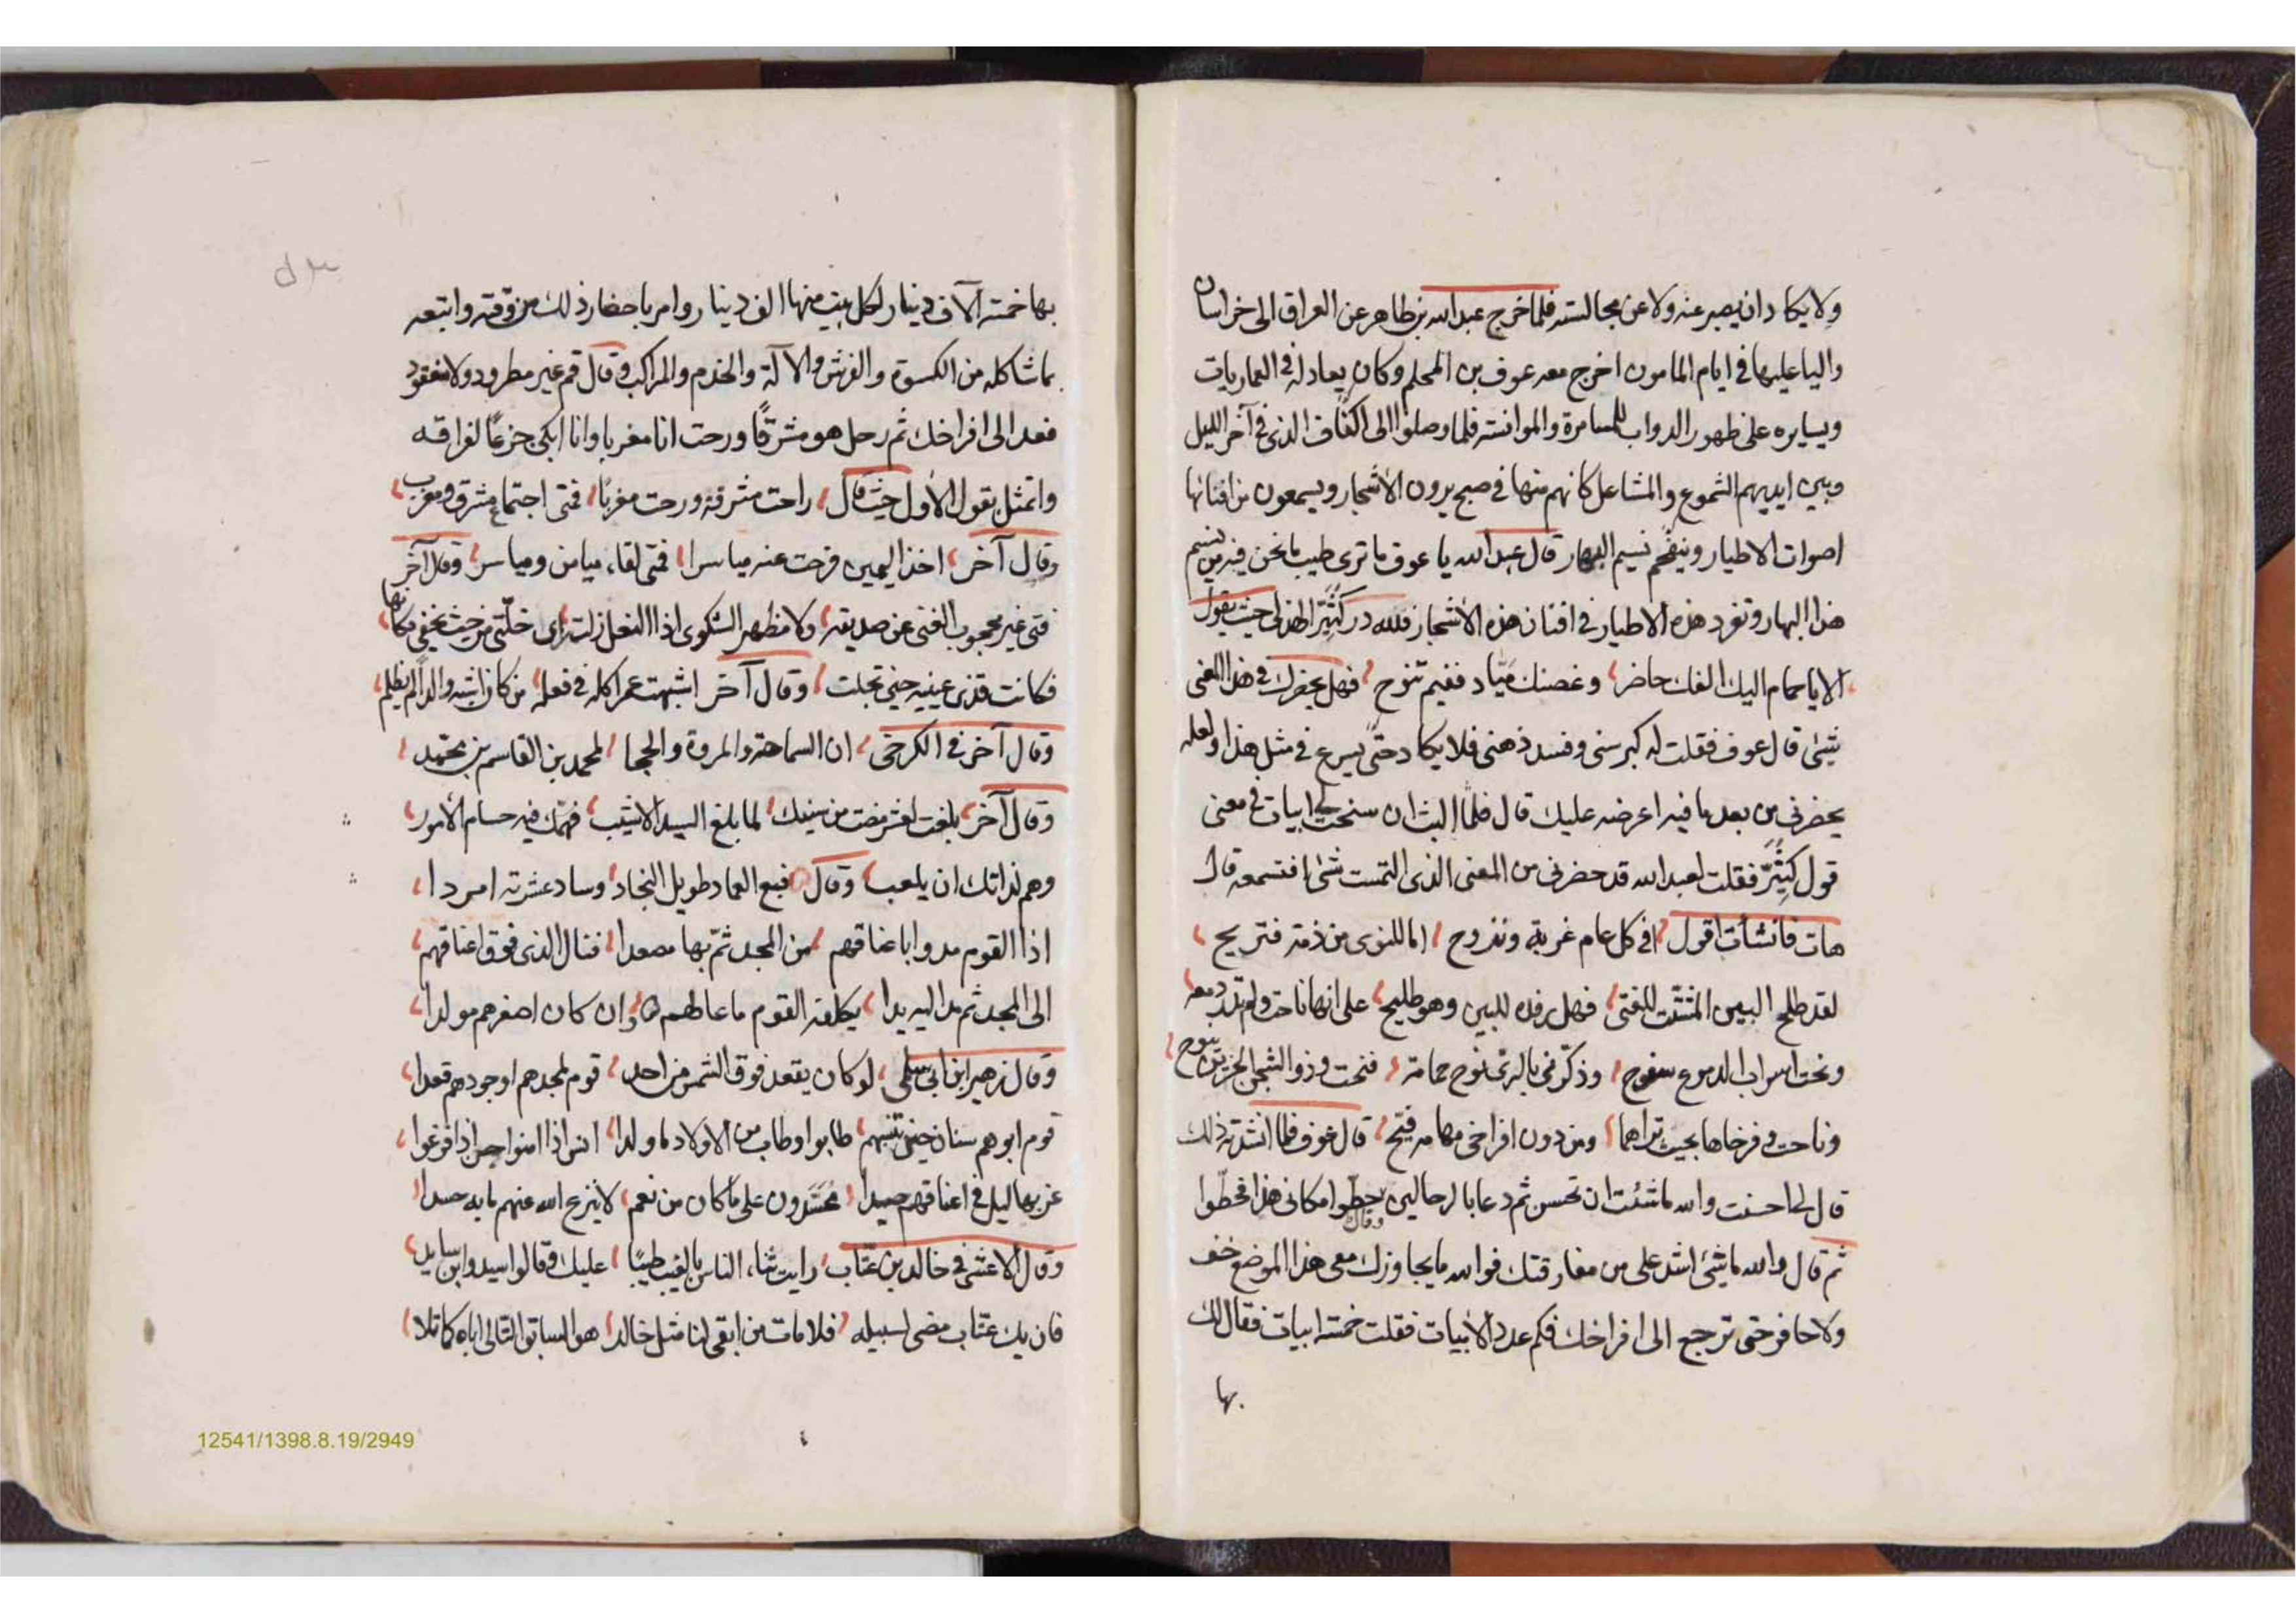 ولا يكاد ان يصبر عنه ولا عن مجالسته فلما خرج عبدالله بن طاهر عن العراق الى خراسان
واليا عليها في ايام المامون اخرج معه عوف بن المحلم وكان يعادله في العماريات
ويسايره على ظهور الدواب للمسامرة والموانسة فلما وصلوا الى اكناف الذي في آخر الليل
وبين ايديهم الشموع والمشاعل كانهم منها في صبح يرون الأشجار ويسمعون من افنانها
اصوات الاطيار وينفحهم نسيم البهار قال عبدالله يا عوف ما ترى طيب ما نحن فيه من نسيم
هذا البهار وتغرد هذه الاطيار في افنان هذه الأشجار فلله در كثير الهذلى حيث يقول
الا يا حمام اليك الفك حاضر وغصنك مياد ففيم تنوح فهل يحضرك في هذا المعنى
شئ قال عوف فقلت له كبر سنى وفسد ذهنى فلا يكاد حتى يسرع في مثل هذا ولعله
يحضرني من بعد ما فيه اعرضه عليك قال فلما البث ان سنحت لى ابيات في معنى
قول كثير فقلت لعبد الله قد حضرنى من المعنى الذى التمست شئ افتسمعه قال
هات فانشأت اقول افي كل عام غربة ونزوح اما للنوى من ذمة فتريح
لقد طلح البين المشتت للفتى فهل رفده للبين وهو طليح على انها ناحت ولم تذر دمعه
ونحت واسراب الدموع سفوح وذكرنى بالرى نوح حمامة فنحت وذو الشجن الحزين ينوح
وناحت وفرخاها بحيث تراهما ومن دون افراخى مهامه فيح قال عوف فلما انشدته ذلك
قال لى احسنت والله ما شئت ان تحسن ثم دعا بالرحالين وقال حطوا مكانى هذا فحطوا
ثم قال والله ما شئ اشد على من مفارقتك فوالله ما يجاوزك معى هذا الموضع خف
ولا حافر حتى ترجع الى افراخك فكم عدد الأبيات فقلت خمسة ابيات فقال لك
بها
بها خمسة آلاف دينار لكل بيت منها الف دينار وامر باحضار ذلك من وقته واتبعه
بما شاكله من الكسوة والفرش والآلة والخدم والمراكب وقال قم غير مطرود ولا مفقود
فعد الى افراخك ثم رحل هو مشرقًا ورحت انا مغربا وانا ابكى جزعًا لفراقه
واتمثل بقول الأول حيث قال راحت مشرقة ورحت مغربا فمتى اجتماع مشرق ومغرب
وقال آخر اخذ اليمين فرحت عنه مياسرا فمتى لقاء ميامن ومياسر وقال آخر
فتى غير محجوب الغنى عن صديقه ولا مظهر الشكوى اذا النعل زلت راى خلتى من حيث يخفى مكانها
فكانت قذى عينيه حتى تجلت وقال آخر اشبهت عمرا كله في فعله من كان اشبه والدا لم يظلم
وقال آخر في الكرخى ان السماحة والمروة والحجا لمحمد بن القاسم بن محمد
وقال آخر بلغت لعشر مضت من سنيك لما يبلغ السيد الاشيب فهمك فيه حسام الأمور
وهم لداتك ان يلعبوا وقال رفيع العماد طويل النجاد وساد عشيرته امردا
اذا القوم مدوا باعناقهم من المجد ثم بها مصعدا فنال الذى فوق اعناقهم
الى المجد ثم مد اليه يدا يكلفه القوم ما عالهم وان كان اصغرهم مولدا
وقال زهير ابن ابي سلمى لو كان يقعد فوق الشمس من احد قوم لمجدهم او جودهم قعدوا
قوم ابوهم سنان حين تنسبهم طابوا وطاب من الاولاد ما ولدوا انس اذا امنوا جن اذا فزعوا
غر بهاليل في اعناقهم صيدا محسدون على ما كان من نعم لا ينزع الله عنهم ما به حسدا
وقال الاعشى في خالد بن عتاب رايت ثناء الناس بالغيب طيبا عليك وقالوا سيد وابن سايد
فان يك عتاب مضى لسبيله فلا مات من ابقى لنا مثل خالد هو السابق التالى اباه كما تلا
12541/1398.8.19/2949